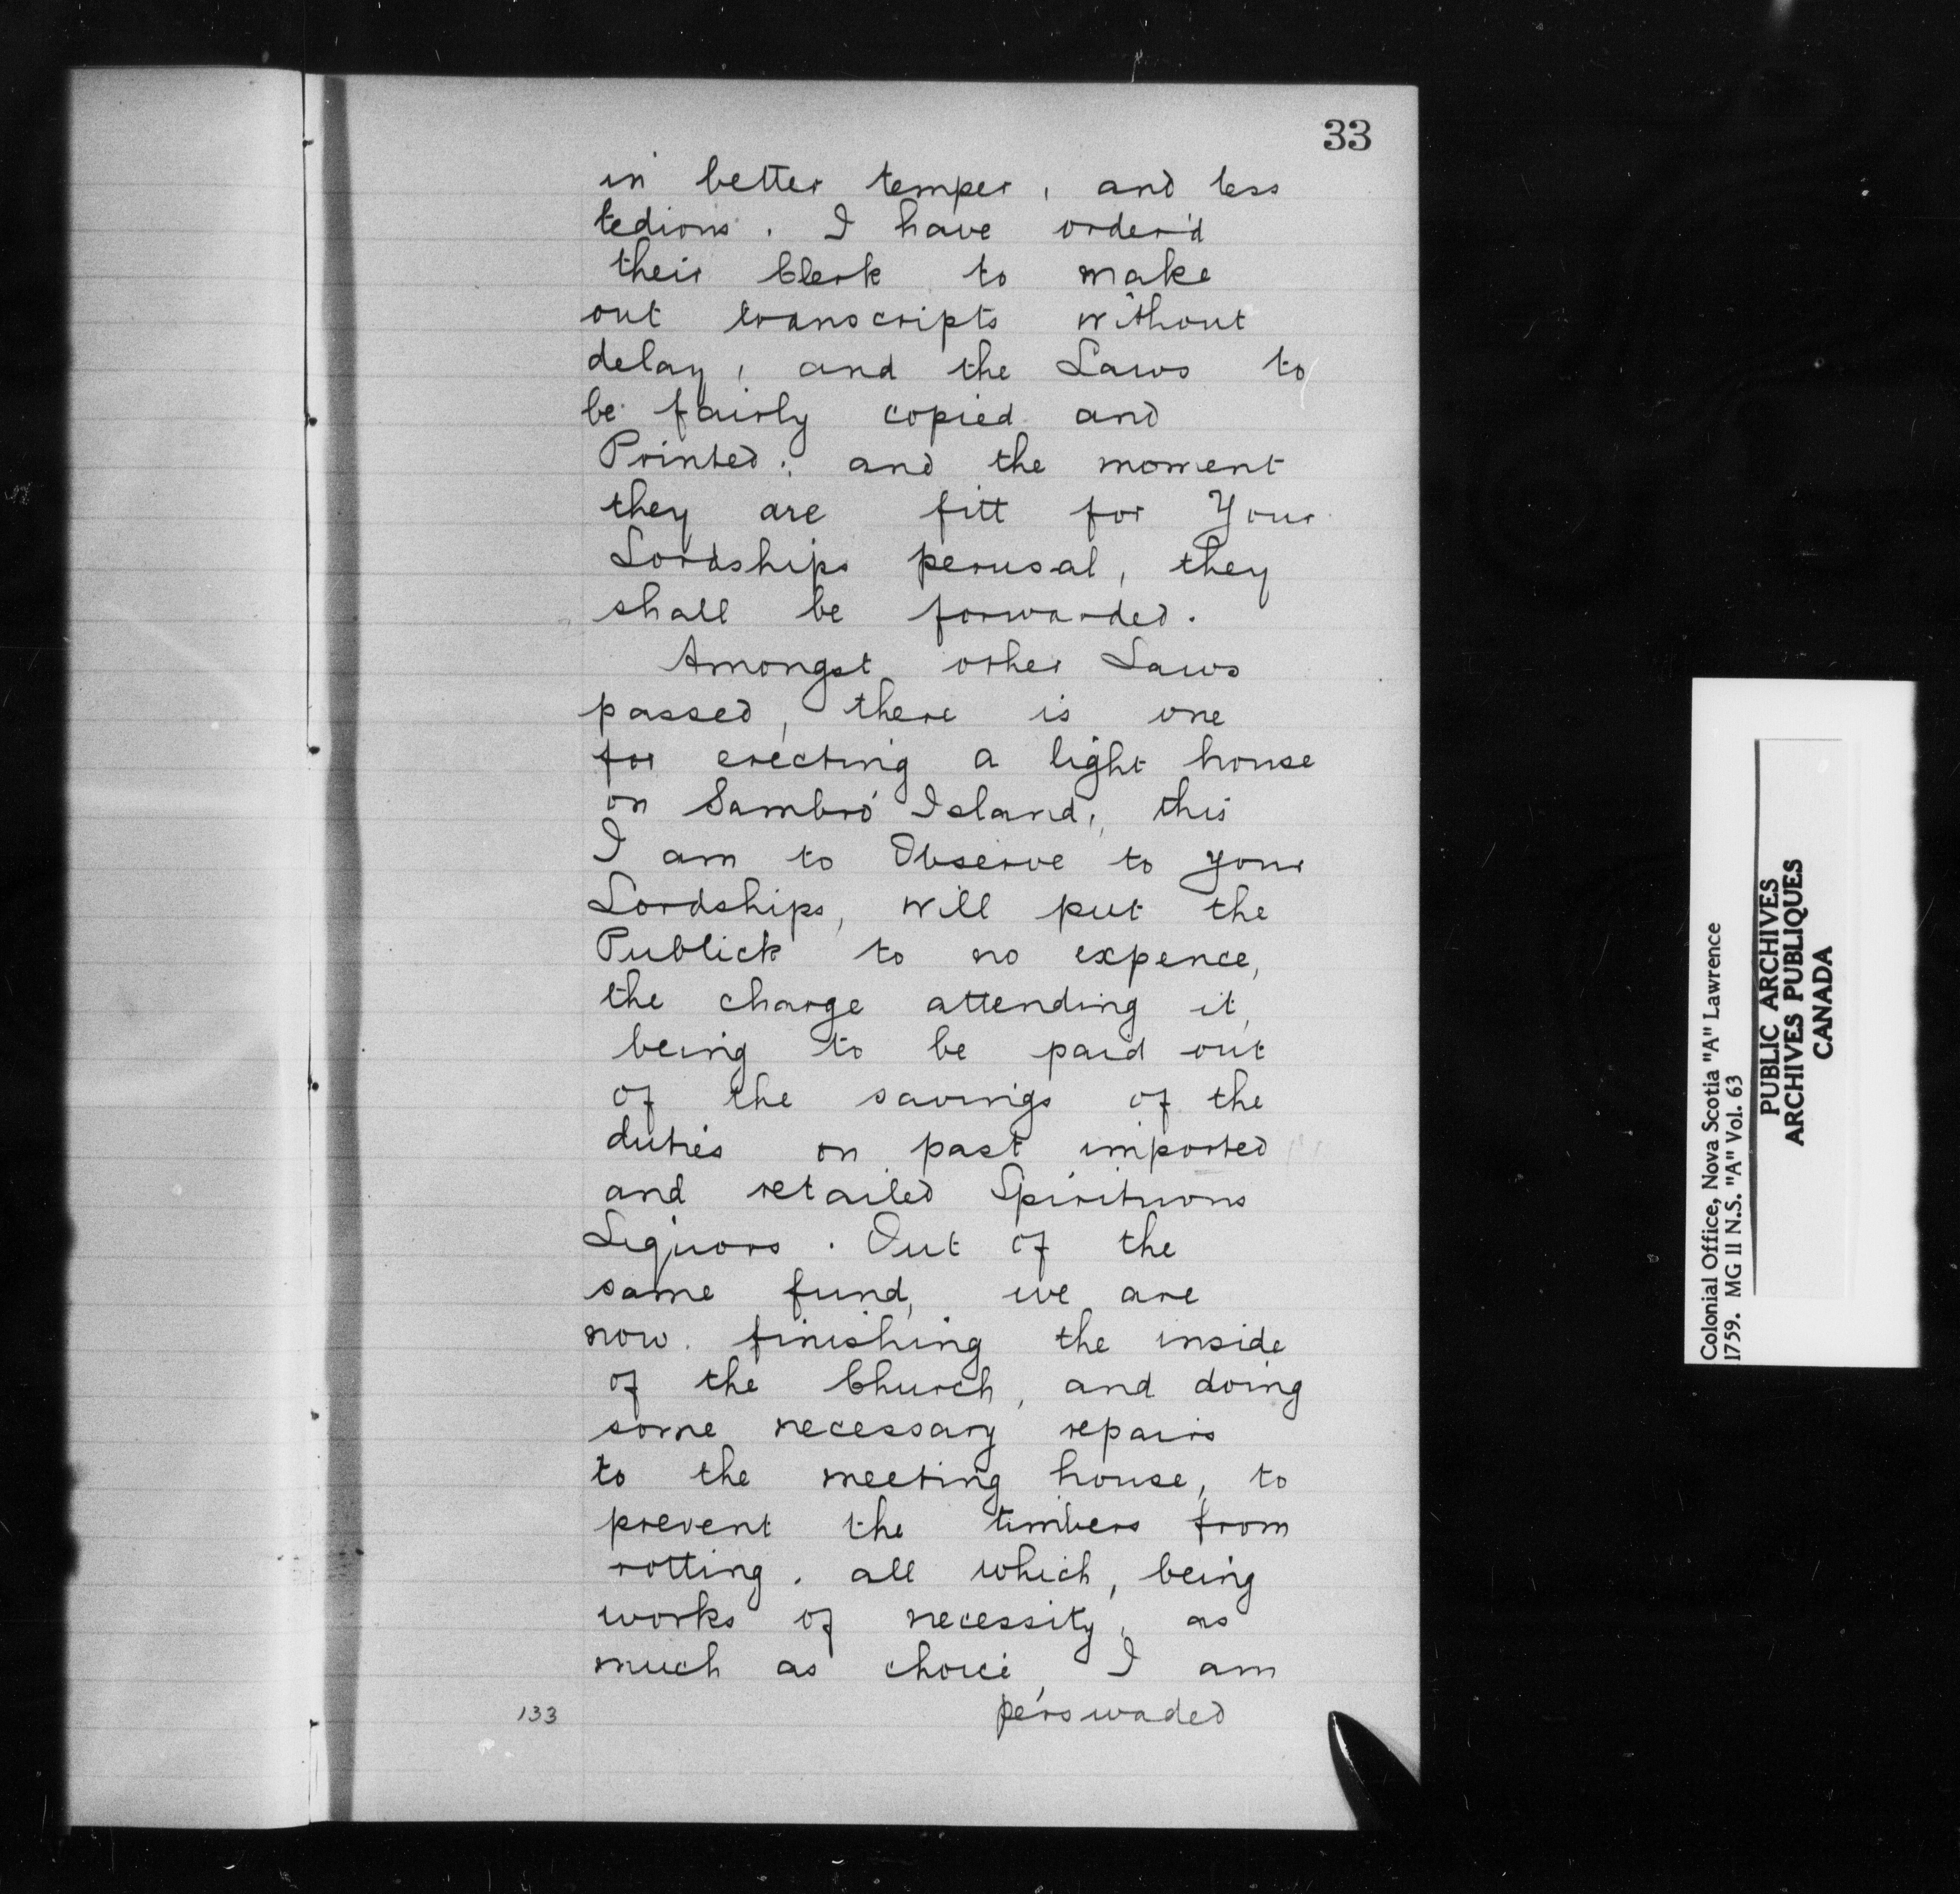 33
in better temper, and less
tedious. I have order'd
their Clerk to make
out transcripts without
delay, and the Laws to
be fairly copied and
Printed; and the moment
they are fitt for Your
Lordships perusal, they
shall be forwarded.
Amongst other Laws
passed, there is one
for erecting a light house
on Sambro' Island, this
I am to Observe to your
Lordships, will put the
Publick to no expence,
the charge attending it,
being to be paid out
of the savings of the
duties on past imported
and retailed Spirituous
Liquors. Out of the
same fund, we are
now finishing the inside
of the Church, and doing
some necessary repairs
to the meeting house, to
prevent the timbers from
rotting. all which, being
works of necessity, as
much as choice, I am
133 perswaded
Colonial Office, Nova Scotia "A" Lawrence
1759. MG II N.S. "A" Vol. 63
PUBLIC ARCHIVES
ARCHIVES PUBLIQUES
CANADA